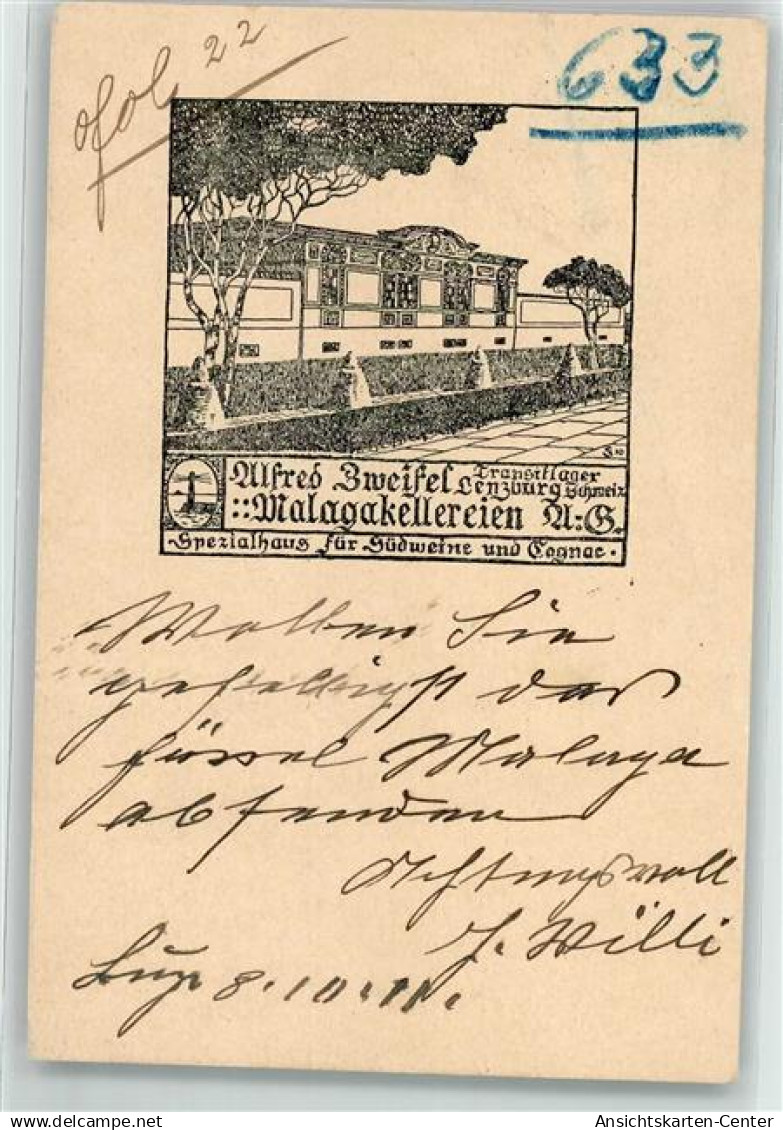 fol. 22
633
Alfred Zweifel Transitlager
Lenzburg Schweiz
::Malagakellereien A:G.
Spezialhaus für Südweine und Cognac.
Wollen Sie
gefelligst das
fässel Malaga
absenden
Achtungsvoll
J. Willi
Luz. 8.10.11.
Ansichtskarten-Center